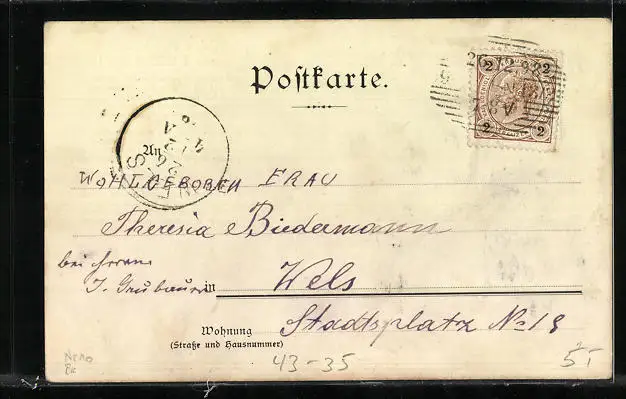 Postkarte.
2 2
2 2
An
WELS
WOHLGEBOREN FRAU
Theresia Biedermann
bei Herrn
J. Grubauer in Wels
Stadtsplatz No 18
Wohnung
(Straße und Hausnummer)
43-35
5,-